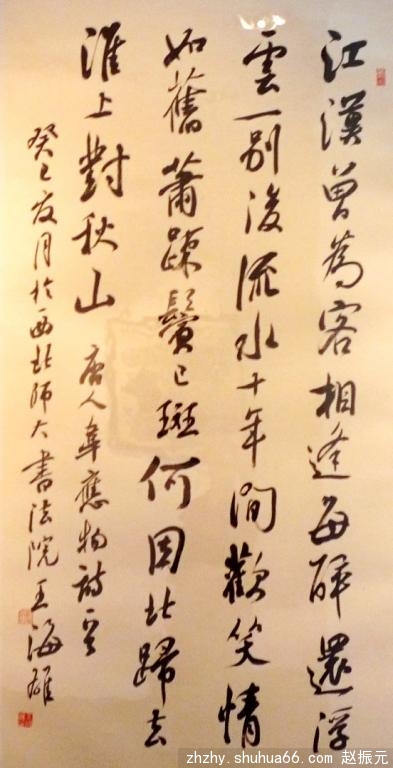 江漢曾為客相逢每醉還浮
雲一別後流水十年間歡笑情
如舊蕭踈鬢已斑何因北歸去
淮上對秋山 唐人韋應物詩
癸巳夏月於西北師大書法院王海雄
zhzhy.shuhua66.com 赵振元